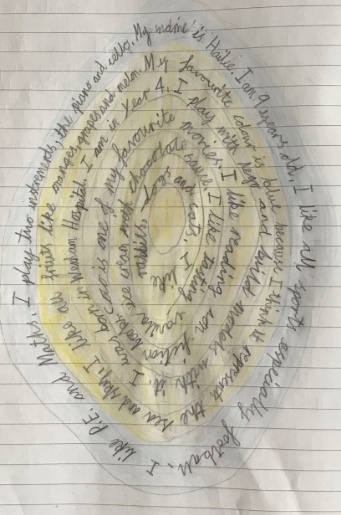 My name is Hailie. I am 9 years old. I like all sports especially football. I like P.E. and Maths. I play two instruments, the piano and cello.
My favourite colour is blue because I think it represent the sea and sky. I like all fruits like oranges, grapes and melon.
I am in Year 4. I play with lego and build models with it. I was born in Wexham Hospital.
Coco is one of my favourite movies. I like reading non fiction books.
I like tasting vanilla ice cream with chocolate sauce.
I like rabbits, dogs and cats.